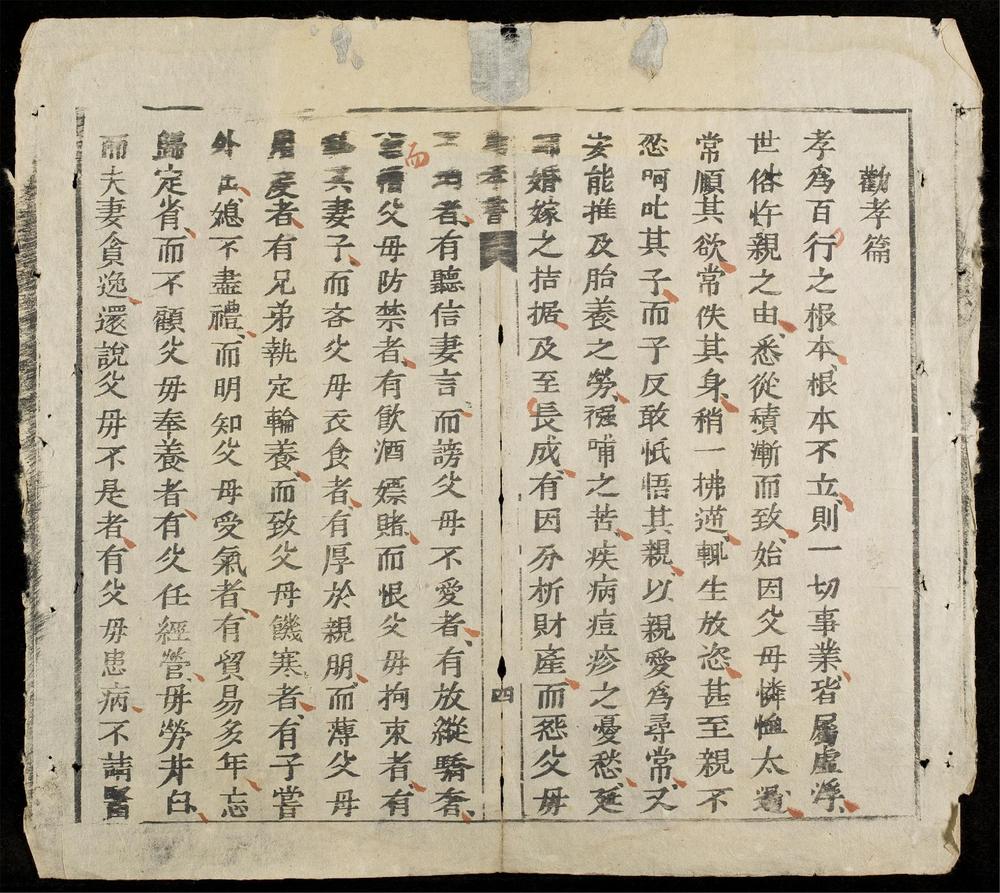 勸孝篇
孝爲百行之根本根本不立則一切事業皆屬虛浮
世俗忤親之由悉從積漸而致始因父母憐恤太過
常順其欲常佚其身稍一拂逆輒生放恣甚至親不
忍呵叱其子而子反敢怟悟其親以親愛爲尋常又
安能推及胎養之勞襁哺之苦疾病痘疹之憂愁延
婚嫁之拮据及至長成有因分析財產而怨父毋
孝書
四
者有聽信妻言而謗父毋不愛者有放縱驕奢
父毋防禁者有飲酒嫖賭而恨父毋拘束者有
其妻子而吝父毋衣食者有厚於親朋而薄父毋
度者有兄弟執定輪養而致父毋饑寒者有子嘗
外出媳不盡禮而明知父毋受氣者有貿易多年忘
歸定省而不顧父毋奉養者有父任經營毋勞井臼
而夫妻貪逸還說父毋不是者有父毋患病不請醫
而